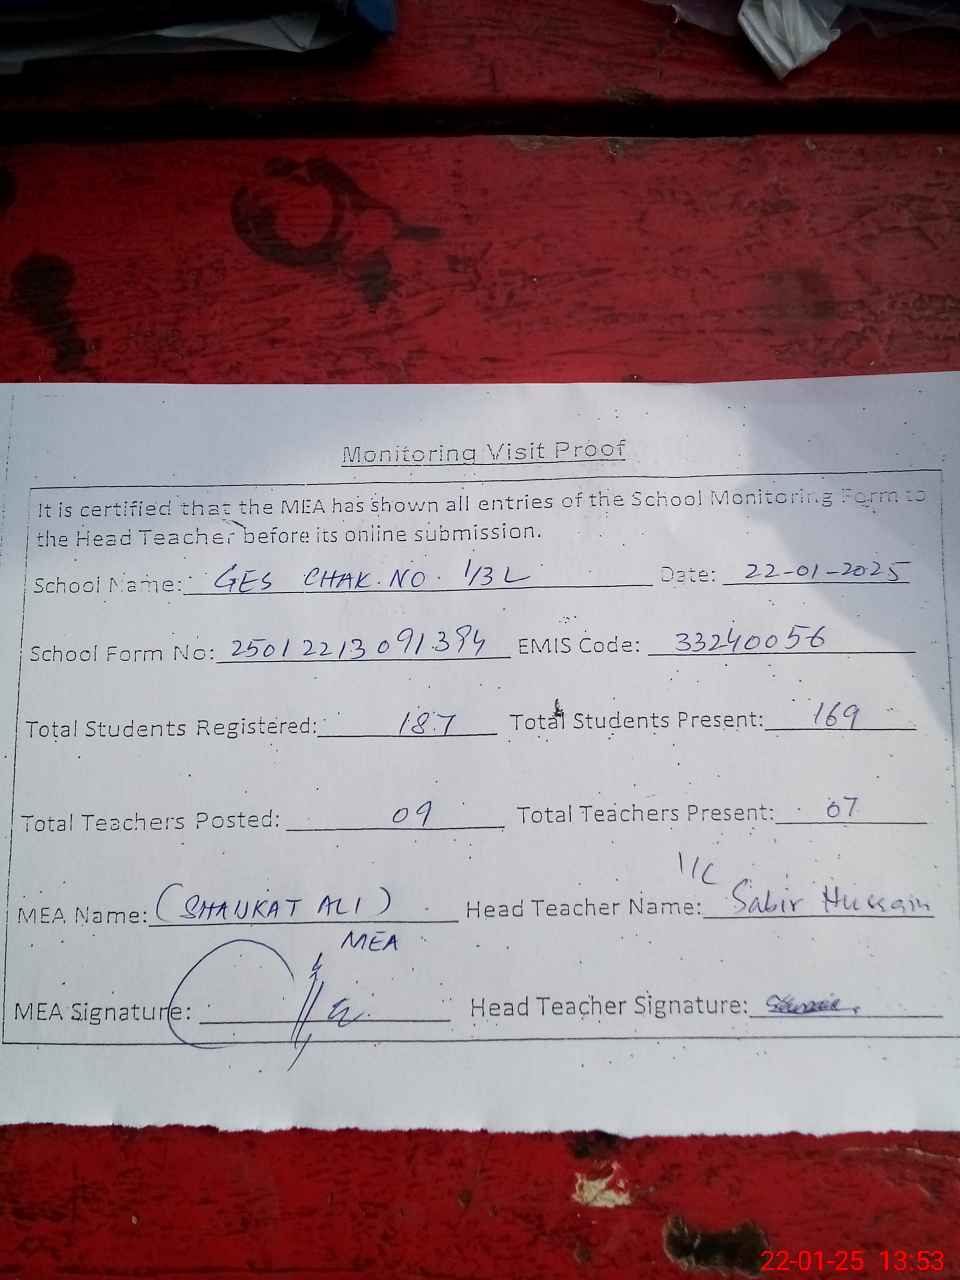 Monitoring Visit Proof
It is certified that the MEA has shown all entries of the School Monitoring Form to
the Head Teacher before its online submission.
School Name: GES CHAK.NO. 1/3L Date: 22-01-2025
School Form No: 25012213091394 EMIS Code: 33240056
Total Students Registered: 187 Total Students Present: 169
Total Teachers Posted: 09 Total Teachers Present: 07
I/C
MEA Name: (SHAUKAT ALI) Head Teacher Name: Sabir Hussain
MEA
MEA Signature: Head Teacher Signature:
22-01-25 13:53